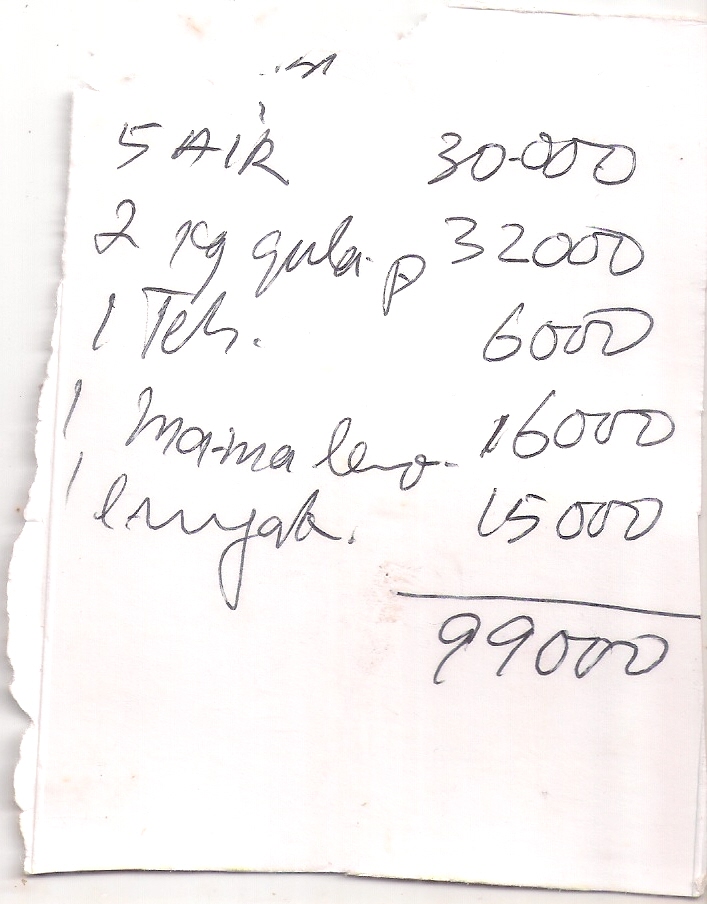 5 AIR 30.000
2 kg gula.p 32000
1 Teh. 6000
1 mama lemo. 16000
1 l mnyak. 15000
99000